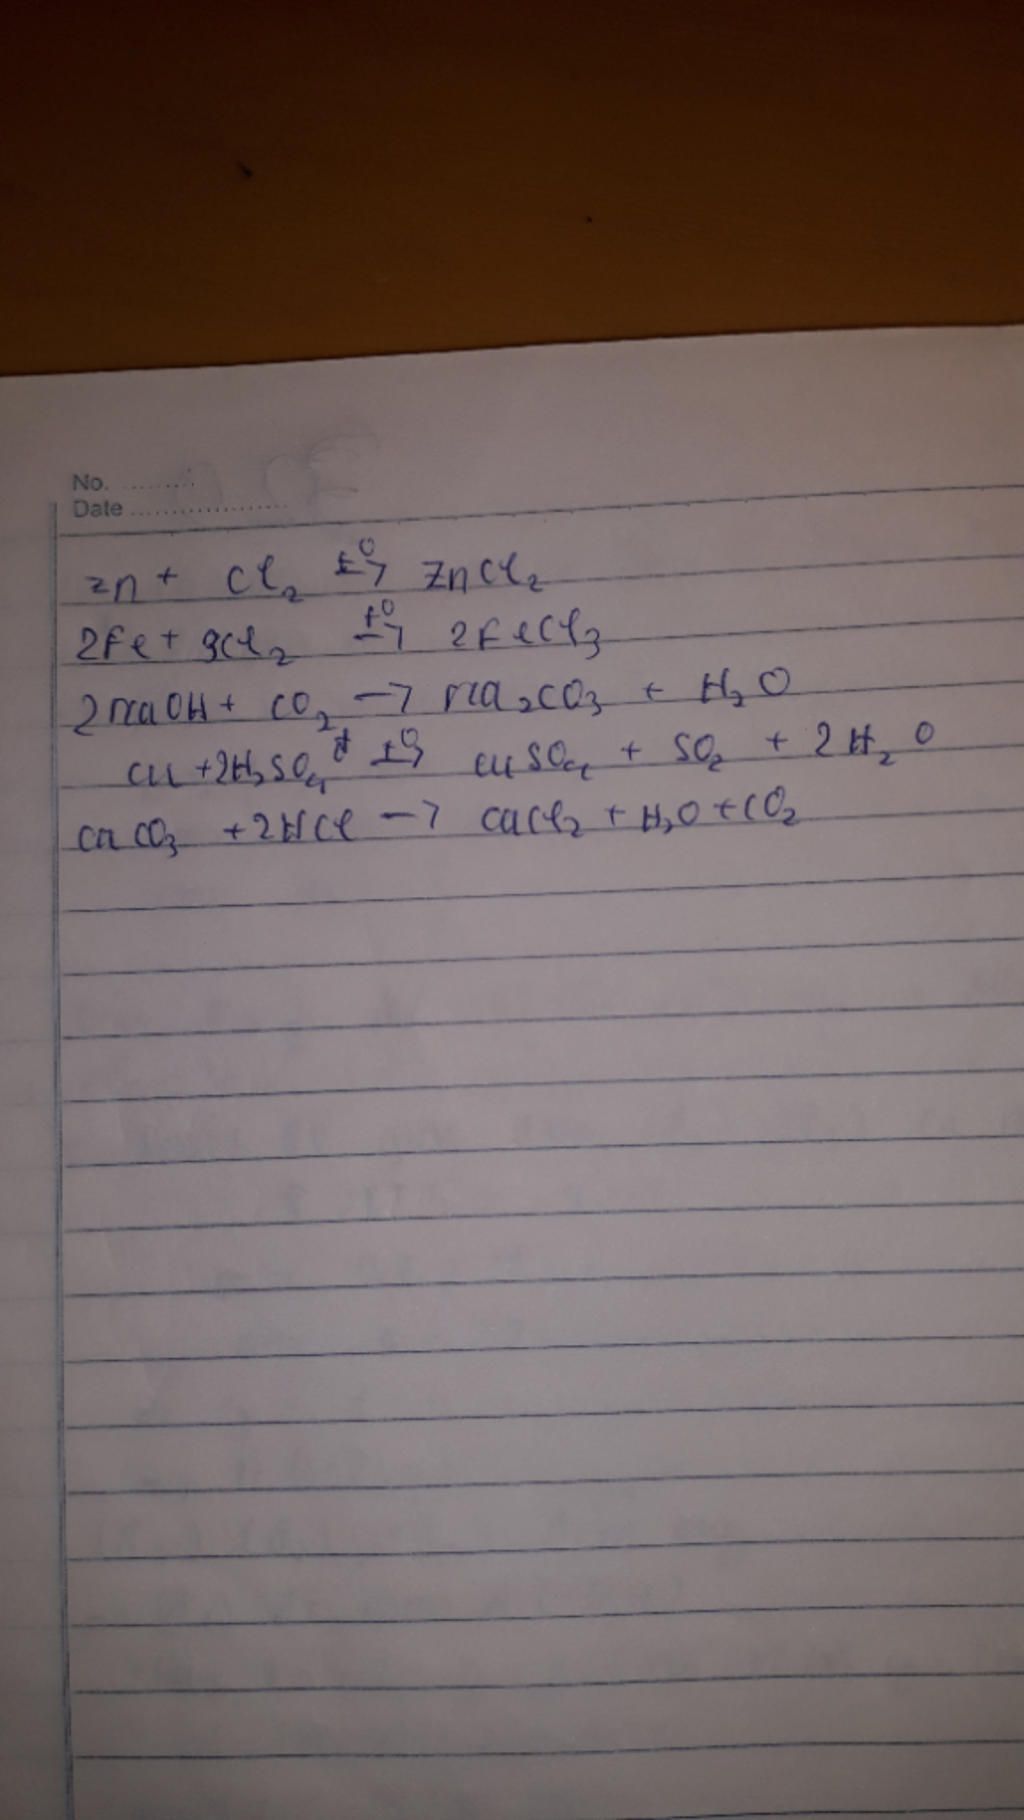 No. ..........
Date ....................
Zn + Cl₂ t⁰→ ZnCl₂
2Fe + 3Cl₂ t⁰→ 2FeCl₃
2NaOH + CO₂ → Na₂CO₃ + H₂O
Cu + 2H₂SO₄ đ t⁰→ CuSO₄ + SO₂ + 2H₂O
CaCO₃ + 2HCl → CaCl₂ + H₂O + CO₂